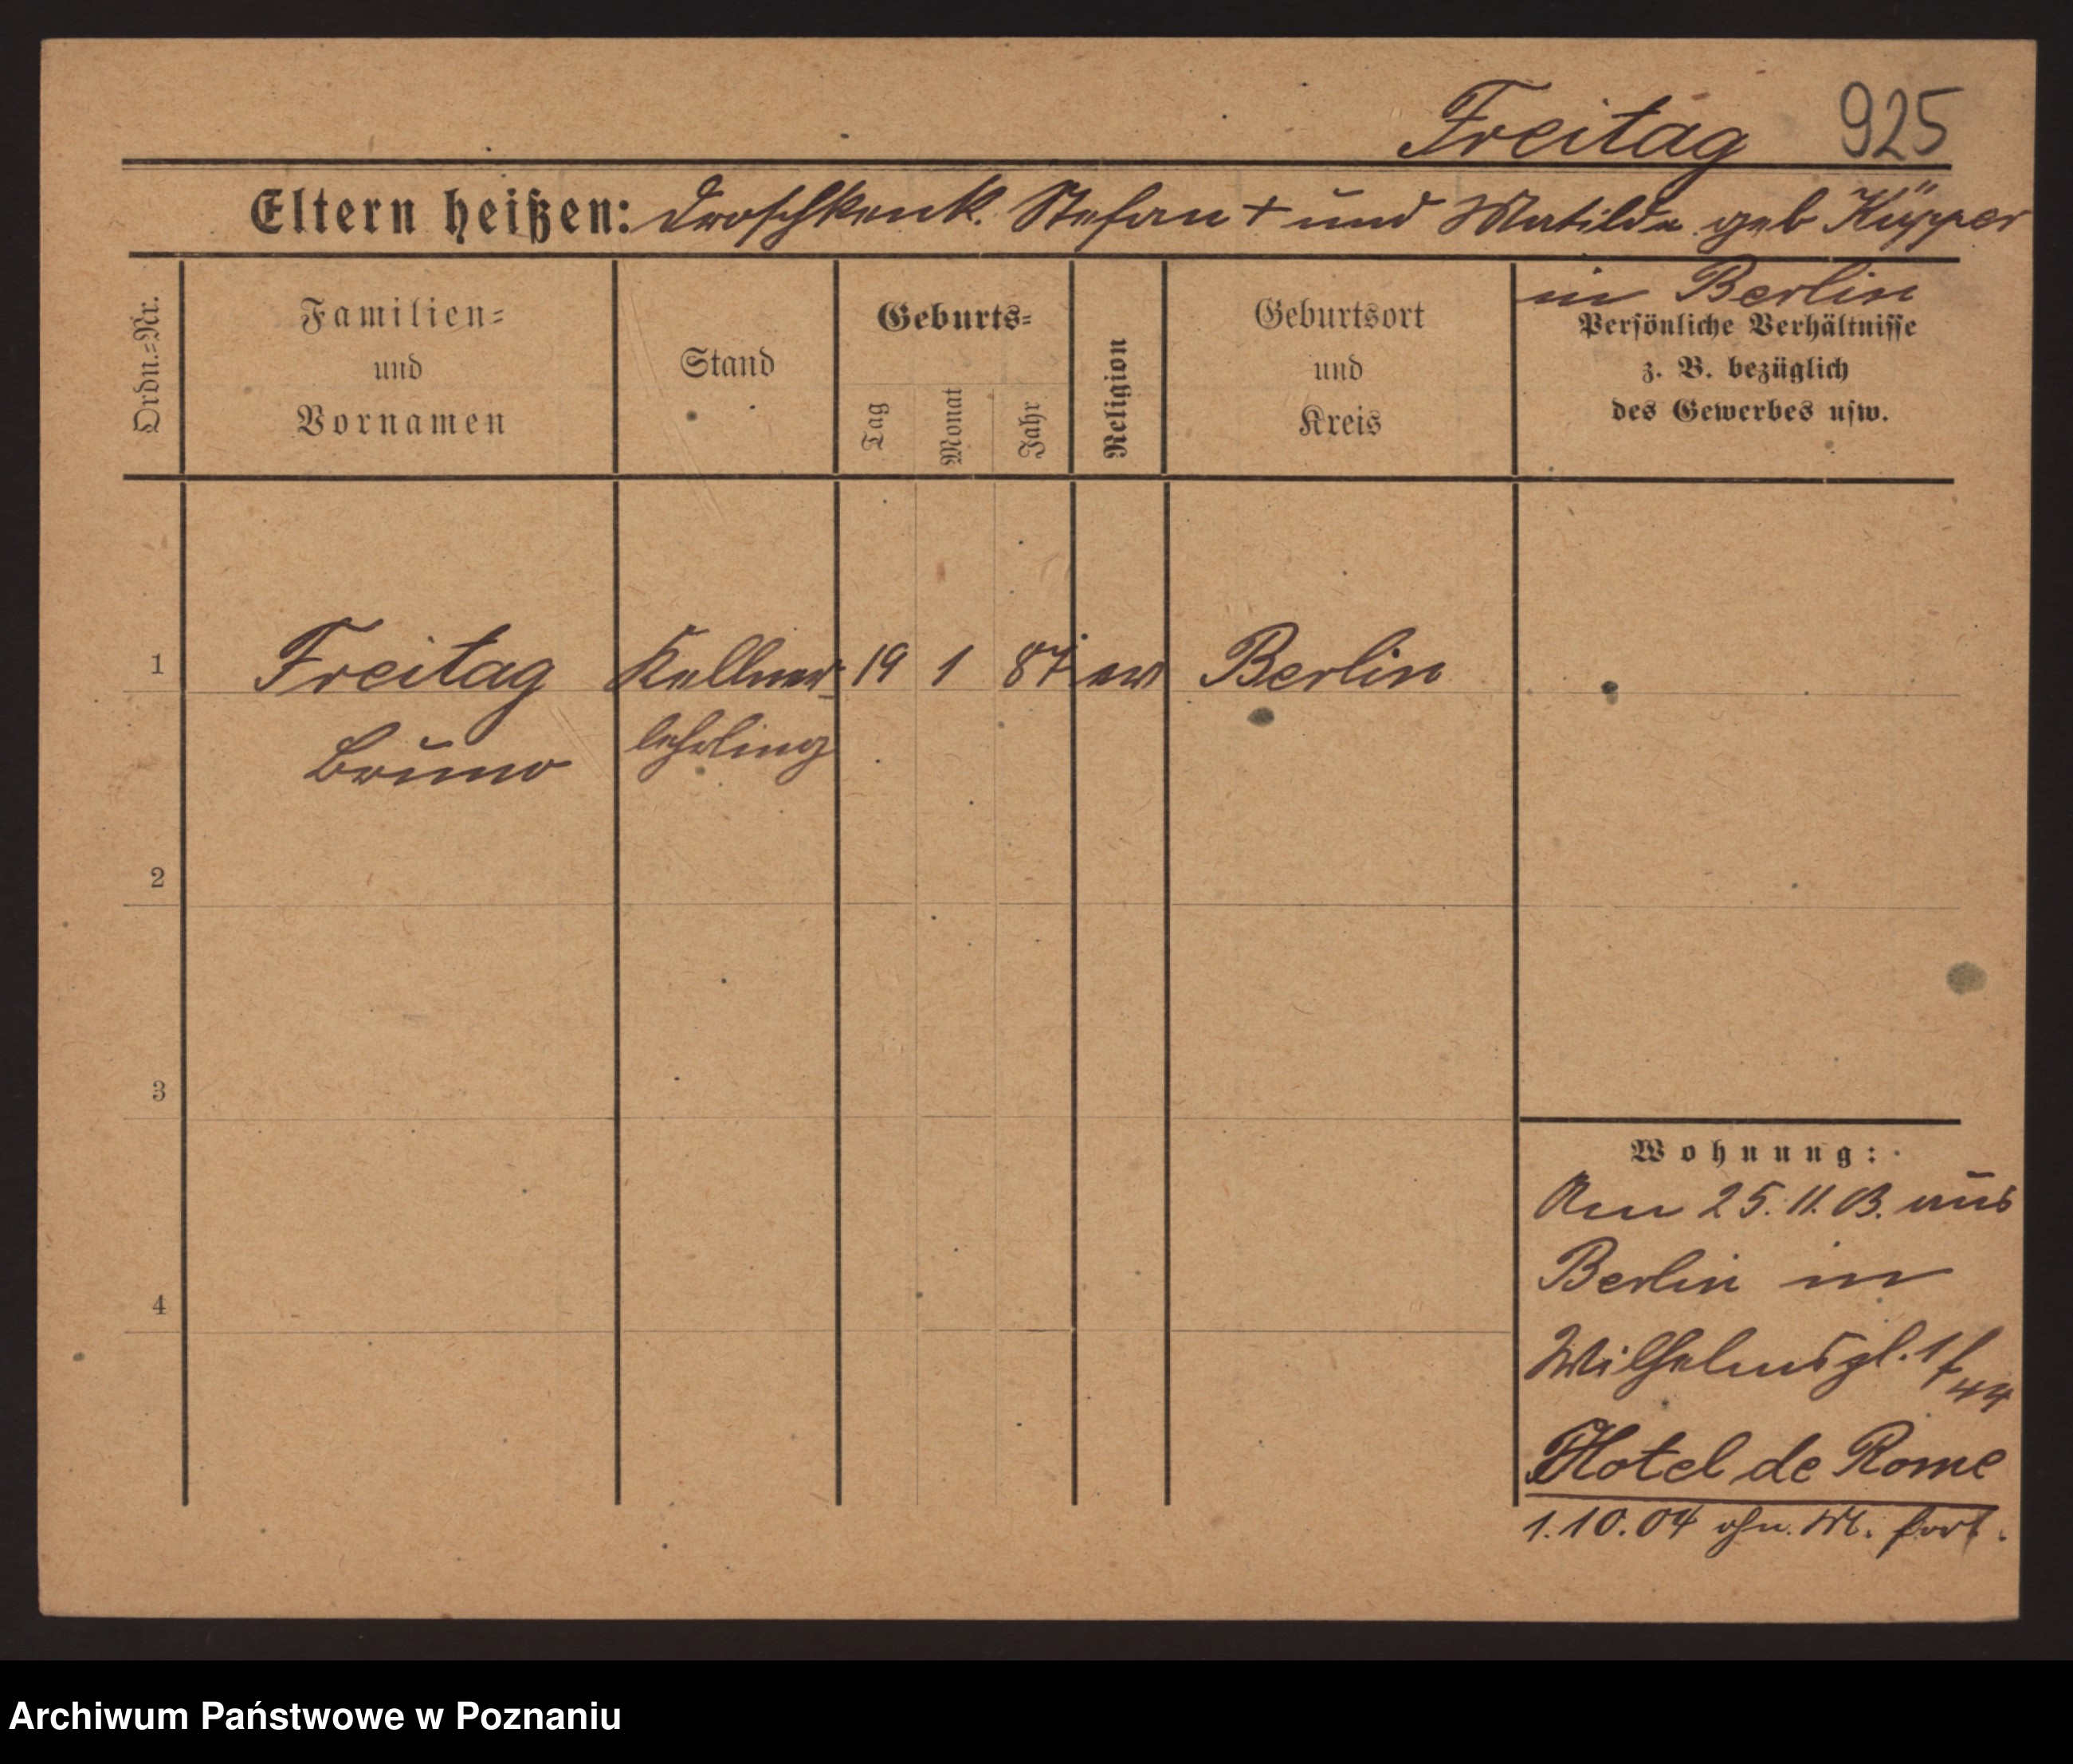 Freitag 925
Eltern heißen: Droschkenk. Stefan + und Matilde geb Küpper
in Berlin
Ordn.=Nr.
Familien=
und
Vornamen
Stand
Geburts=
Tag
Monat
Jahr
Religion
Geburtsort
und
Kreis
Persönliche Verhältnisse
z. B. bezüglich
des Gewerbes usw.
1 Freitag Kellner- 19 1 87 ev Berlin
Bruno lehrling
2
3
4
Wohnung:
Am 25.11.03. aus
Berlin in
Wilhelmspl. 1/44
Hotel de Rome
1.10.04 ohn. M. fort.
Archiwum Państwowe w Poznaniu